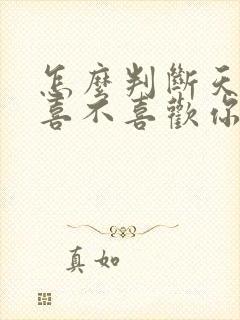 怎麼判斷天
喜不喜歡你
真如